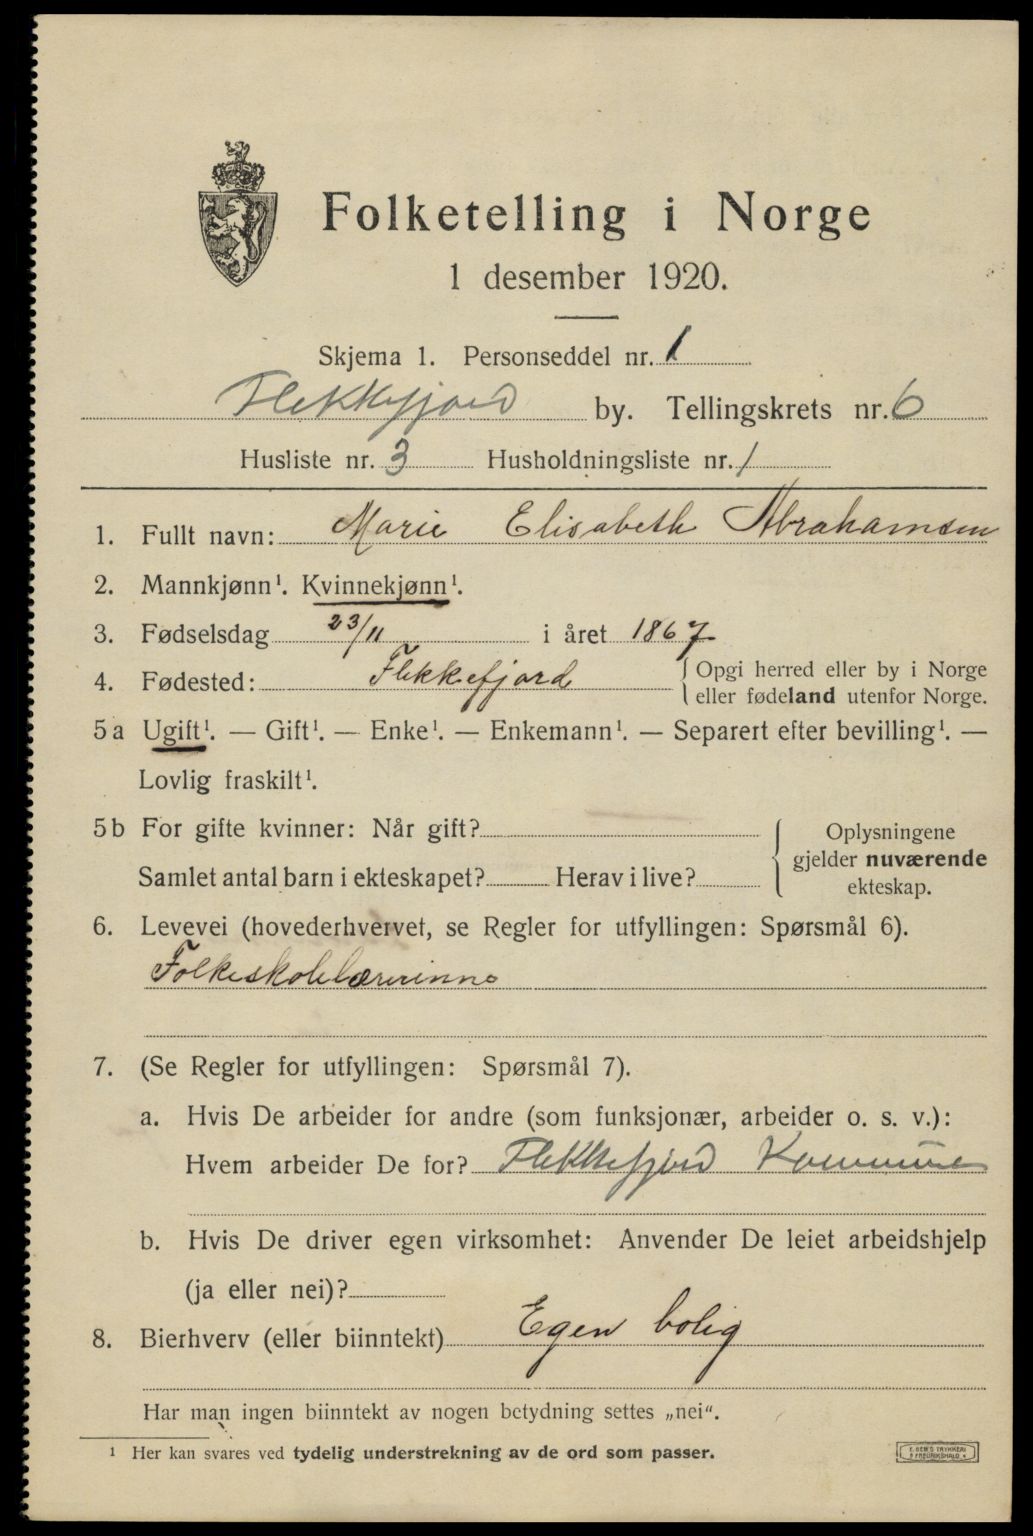 Folketelling i Norge
1 desember 1920.
Skjema 1. Personseddel nr. 1
Flekkefjord by. Tellingskrets nr. 6
Husliste nr. 3 Husholdningsliste nr. 1
1. Fullt navn: Marie Elisabeth Abrahamsen
2. Mannkjønn¹. Kvinnekjønn¹.
3. Fødselsdag 23/11 i året 1867
4. Fødested: Flekkefjord { Opgi herred eller by i Norge
eller fødeland utenfor Norge.
5a Ugift¹. — Gift¹. — Enke¹. — Enkemann¹. — Separert efter bevilling¹. —
Lovlig fraskilt¹.
5b For gifte kvinner: Når gift?
Samlet antal barn i ekteskapet? Herav i live?
Oplysningene
gjelder nuværende
ekteskap.
6. Levevei (hovederhvervet, se Regler for utfyllingen: Spørsmål 6).
Folkeskolelærerinne
7. (Se Regler for utfyllingen: Spørsmål 7).
a. Hvis De arbeider for andre (som funksjonær, arbeider o. s. v.):
Hvem arbeider De for? Flekkefjord Kommune
b. Hvis De driver egen virksomhet: Anvender De leiet arbeidshjelp
(ja eller nei)?
8. Bierhverv (eller biinntekt) Egen bolig
Har man ingen biinntekt av nogen betydning settes „nei“.
¹ Her kan svares ved tydelig understrekning av de ord som passer.